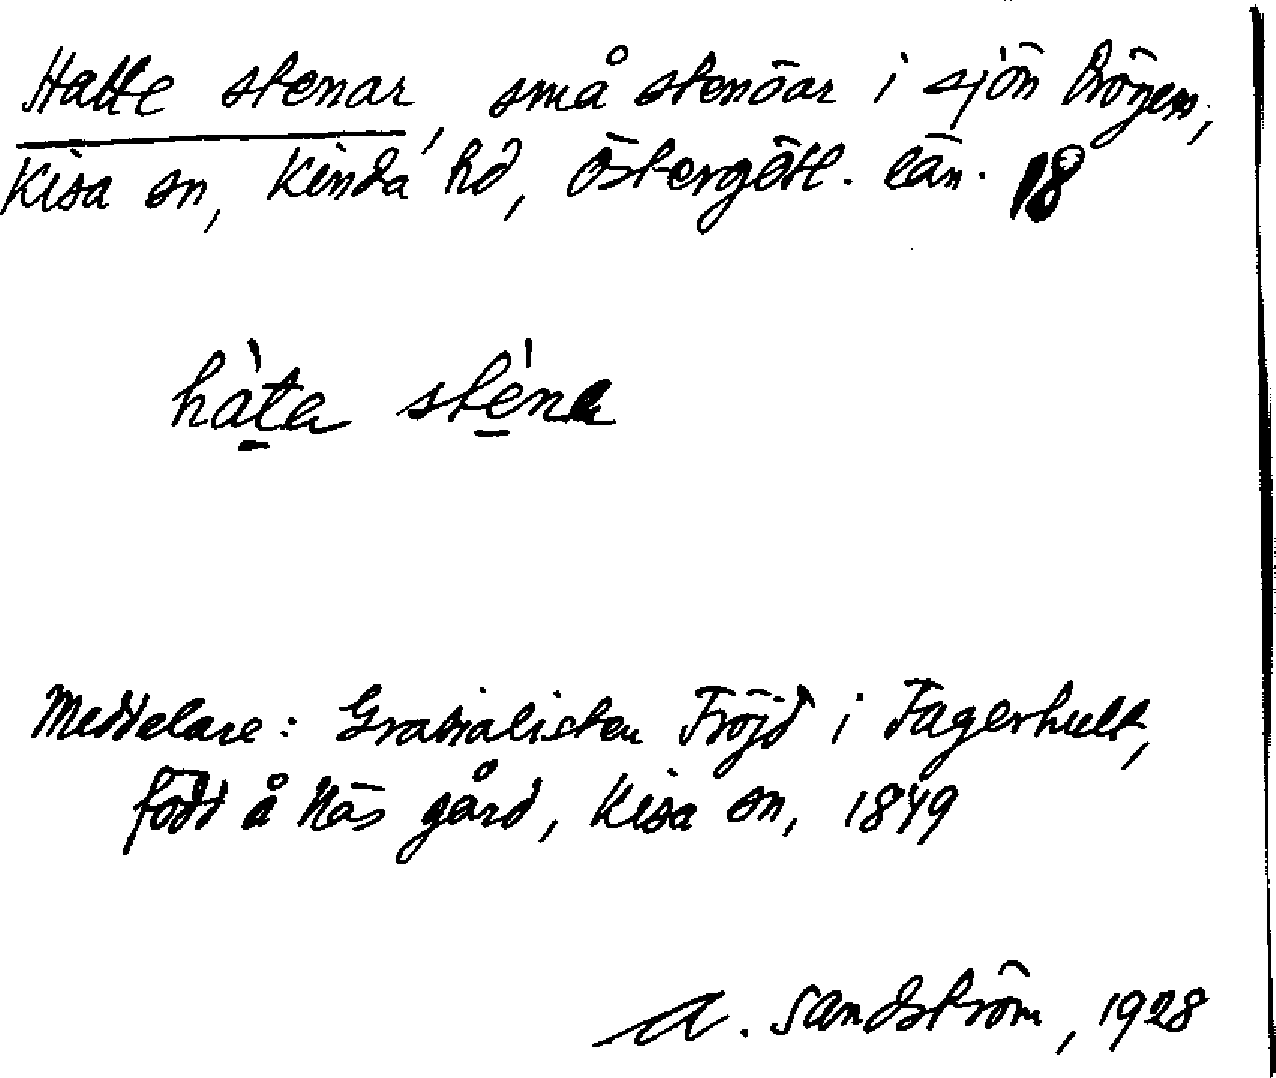 Hatte stenar, små stenöar i sjön Drögen,
Kisa sn, Kinda hd, Östergötl. län. 18
hàta sténa
Meddelare: Gratialisten Fröjd i Fagerhult,
född å Näs gård, Kisa sn, 1849
A. Sandström, 1928